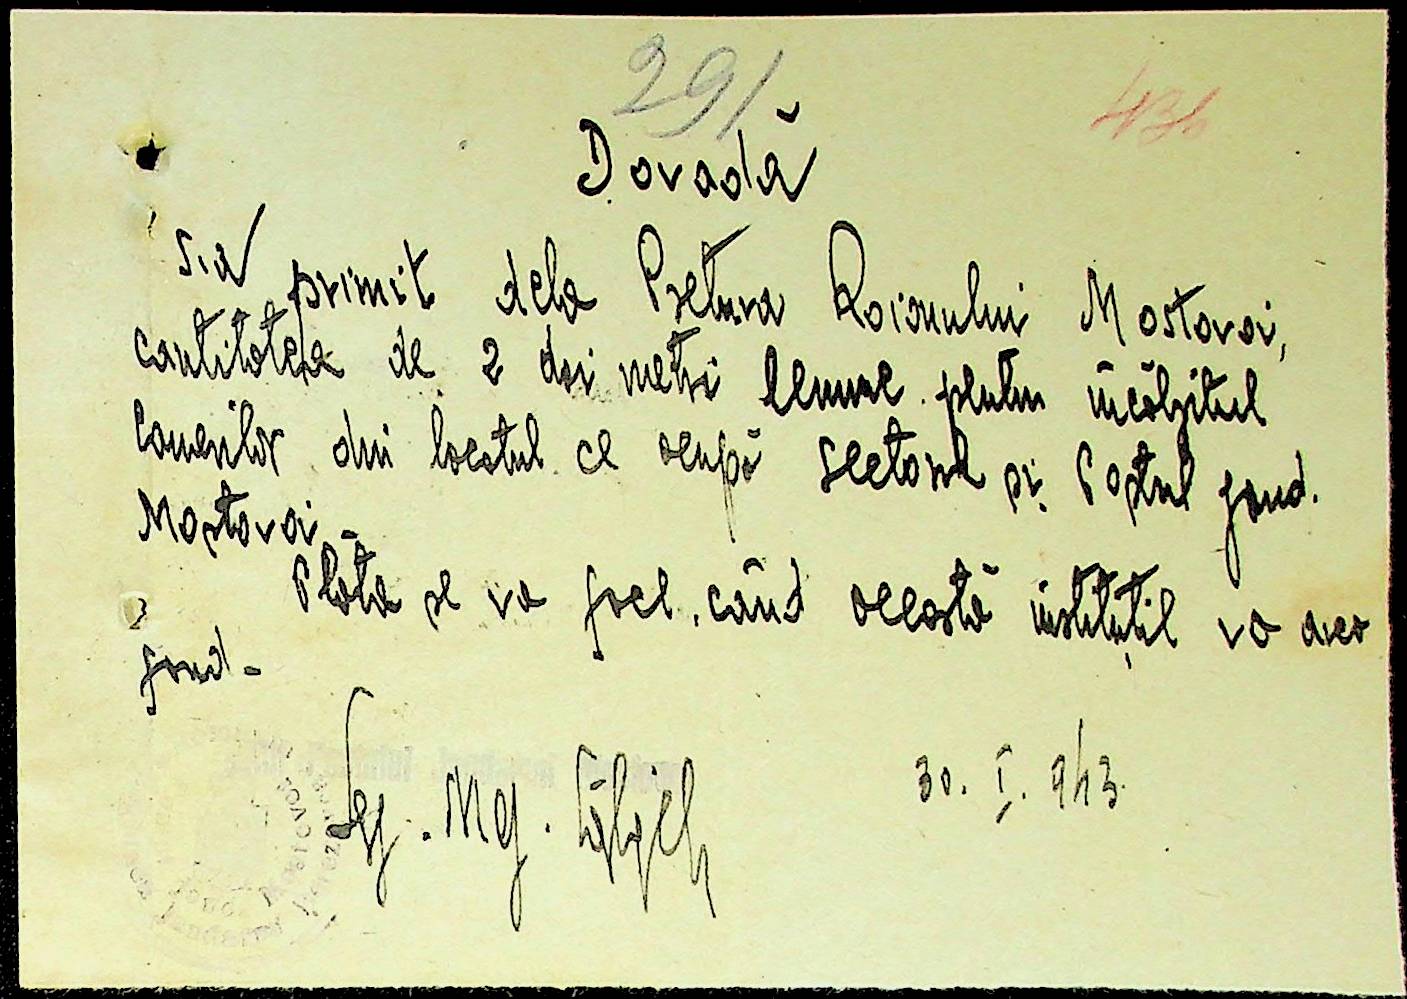 291
Dovadă
S.a primit dela Pretura Raionului Mostovoi,
cantitatea de 2 doi metri lemne pentru încălzitul
camerilor din localul ce ocupă Sectorul și Postul jand.
Mostovoi.
Plata se va face, când această instituție va avea
fond.
Sg. Mg.
30. I. 943.